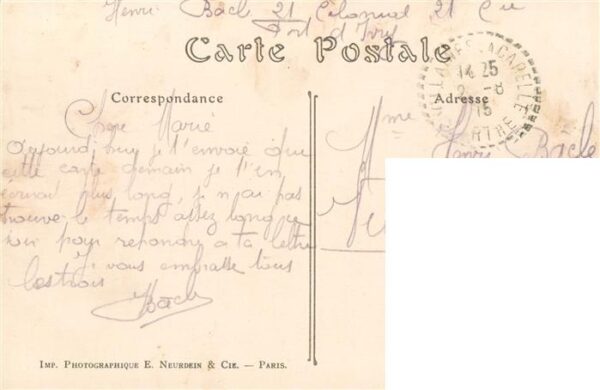 Henri Bacle 21 Colonial 21 Cie
Fort d'Ivry
Carte Postale
LACAPELLE
14 25
2 - 8
15
Correspondance
Adresse
Chere Marie
Aujourd'huy je t'envoie que
cette carte demain je t'en
plus long je n ai pas
trouve le temps assez long ce
soir pour repondre a ta lettre
Je vous embrasse tous
les trois
Bacle
Mme Henri Bacle
IMP. PHOTOGRAPHIQUE E. NEURDEIN & CIE. — PARIS.